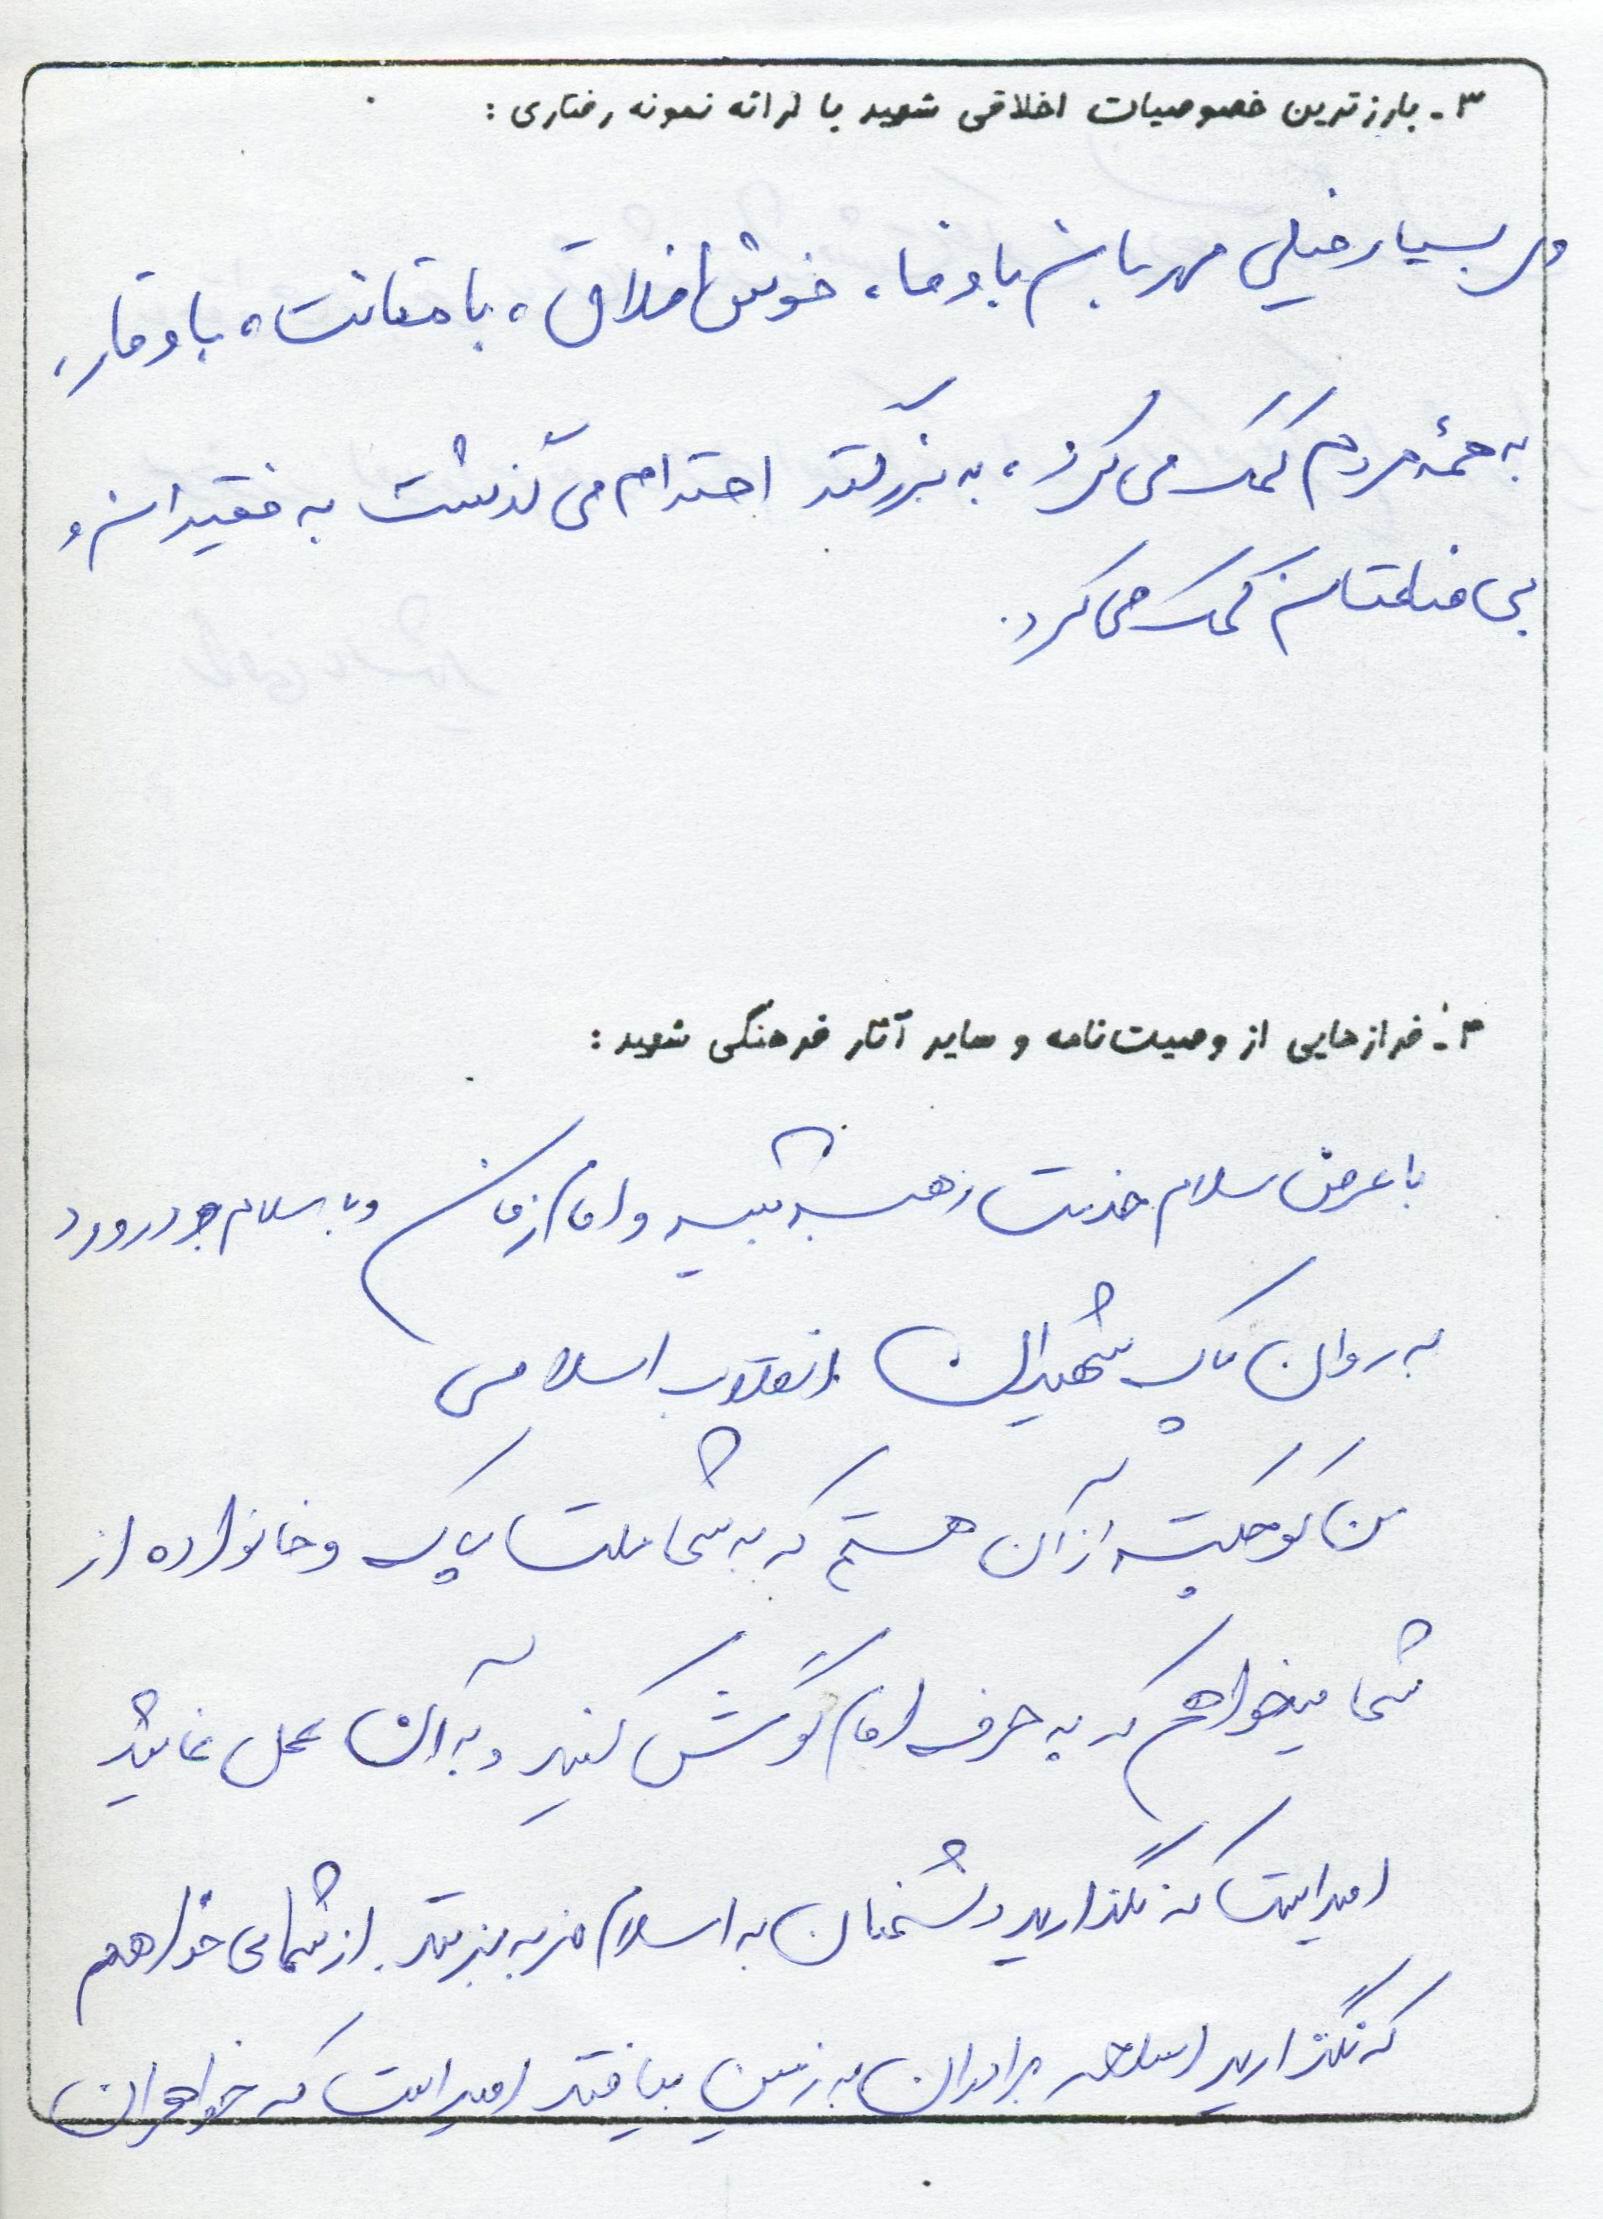 ۳ - بارزترین خصوصیات اخلاقی شهید با ارائه نمونه رفتاری :
وی بسیار خیلی مهربان باوفا، خوش اخلاق، بامتانت، باوقار،
به همهٔ مردم کمک می‌کرد، به بزرگتر احترام می‌گذشت به فقیران و
بی بضاعتان کمک می‌کرد.
۴ - فرازهایی از وصیت‌نامه و سایر آثار فرهنگی شهید :
با عرض سلام خدمت رهبر و امام زمان و با سلام و درود
به روان پاک شهیدان انقلاب اسلامی
من کوچکتر از آن هستم که به شما ملت پاک و خانواده از
شما میخواهم که به حرف امام گوش کنید و به آن عمل نمائید
امید است که نگذارید دشمنان به اسلام ضربه بزنند. از شما می‌خواهم
که نگذارید اسلحه برادران به زمین بیافتد امید است که خواهران